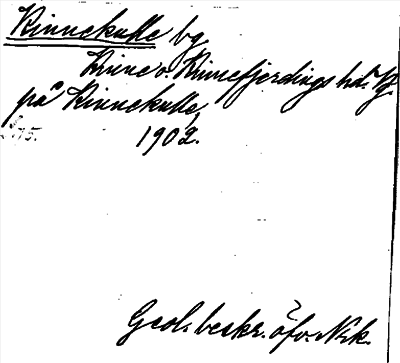 Kinnekulle bg
Kinne o. Kinnefjerdings hd. Vg.
på Kinnekulle,
1902.
Geol. beskr. öfv. Nrk.